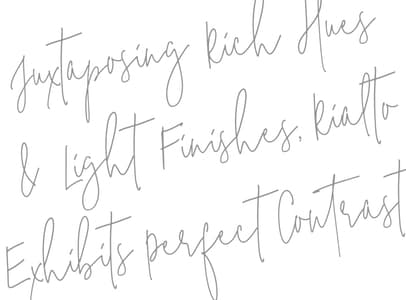 Juxtaposing Rich Hues
& Light Finishes, Rialto
Exhibits perfect Contrast